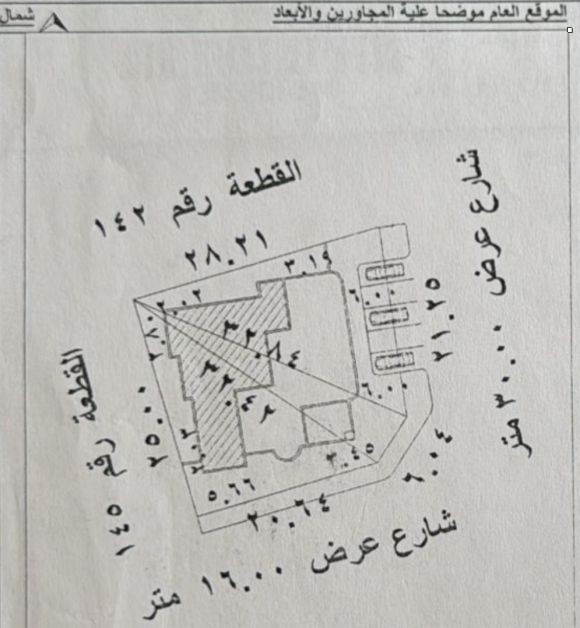 الموقع العام موضحا علية المجاورين والأبعاد
شمال
القطعة رقم ١٤٢
شارع عرض ٣٠.٠٠ متر
٢٨.٢١
٣.١٤
٢.٠٢
٦.٠٠
٢١.٢٥
القطعة رقم ١٤٥
٢٥.٠٠
٦.٠٠
٦.٠٤
٥.٦٦
٢٠.٦٤
شارع عرض ١٦.٠٠ متر